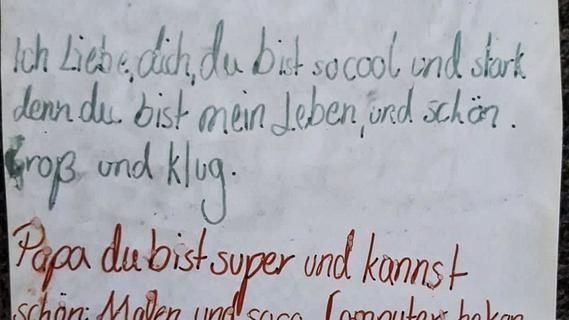 Ich Liebe, dich, du bist so cool und stark
denn du bist mein Leben, und schön.
Groß und klug.
Papa du bist super und kannst
schön: Malen und sogar Computer